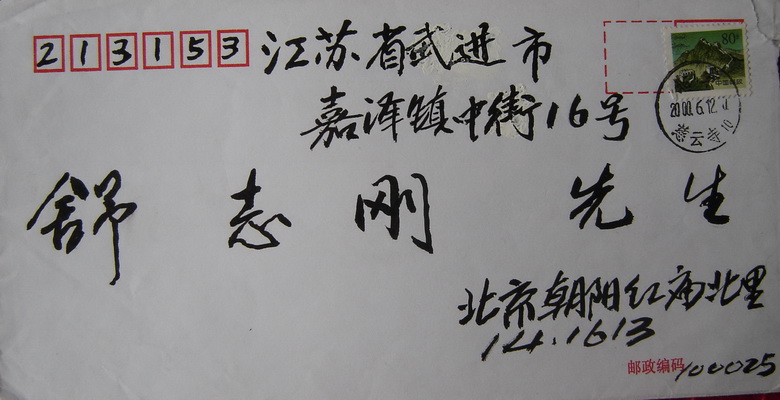 213153 江苏省武进市
嘉泽镇中街16号
舒志刚 先生
北京朝阳红庙北里
14.1613
邮政编码 100025
80
2000.6.12
慈云寺